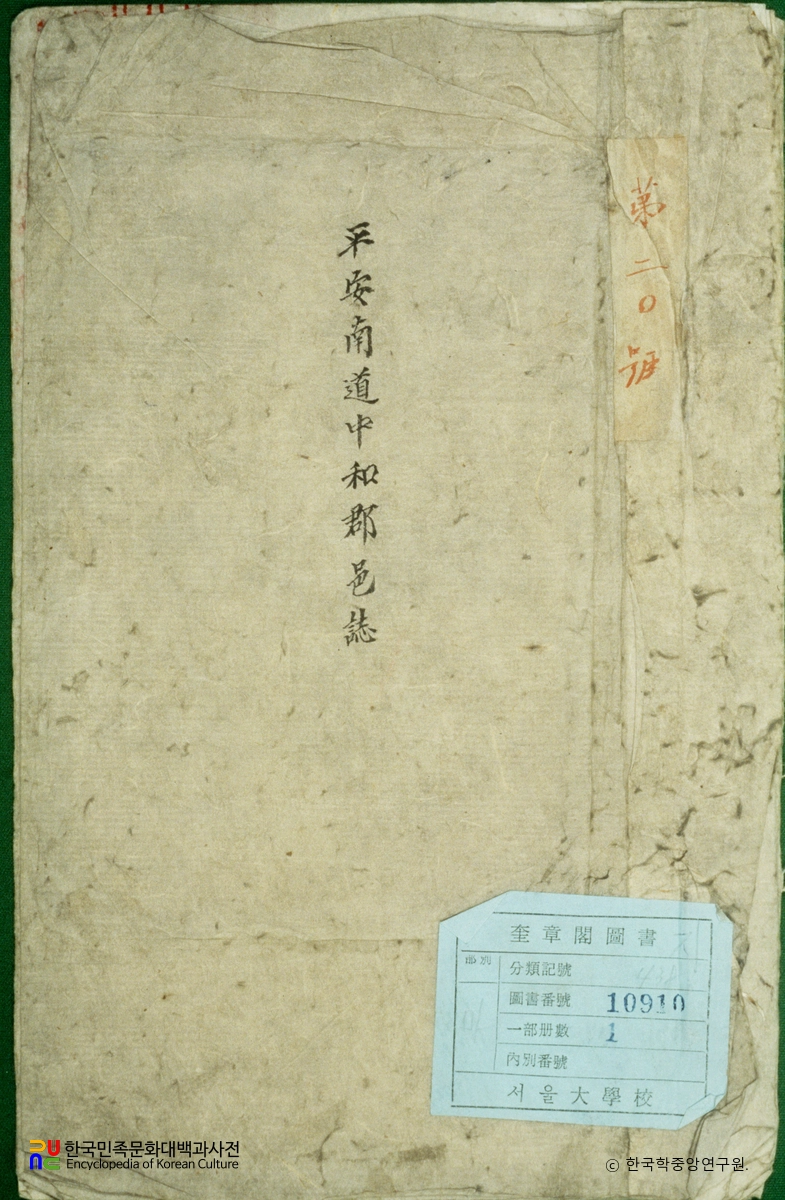 第二〇號
平安南道中和郡邑誌
奎章閣圖書
部別
分類記號
圖書番號 10910
一部册數 1
內別番號
서울大學校
한국민족문화대백과사전
Encyclopedia of Korean Culture
ⓒ 한국학중앙연구원.